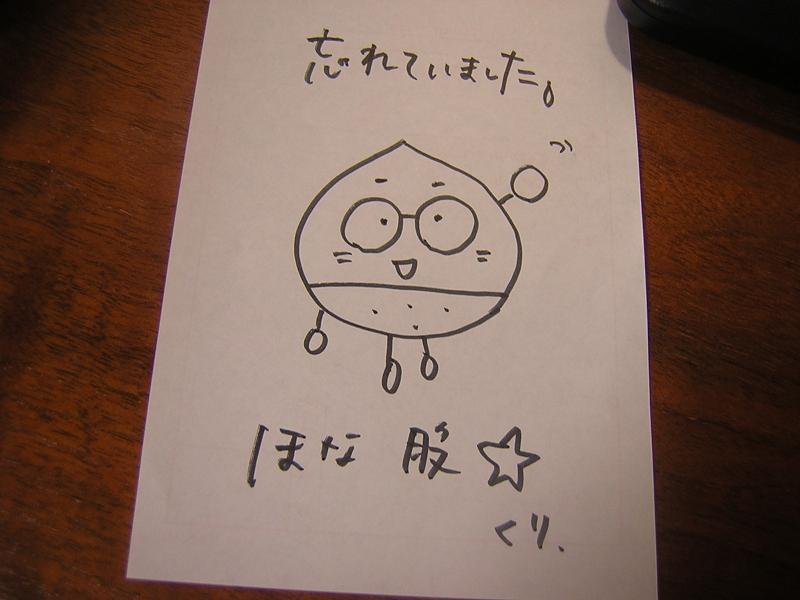 忘れていました。
ほな 股☆
くり.